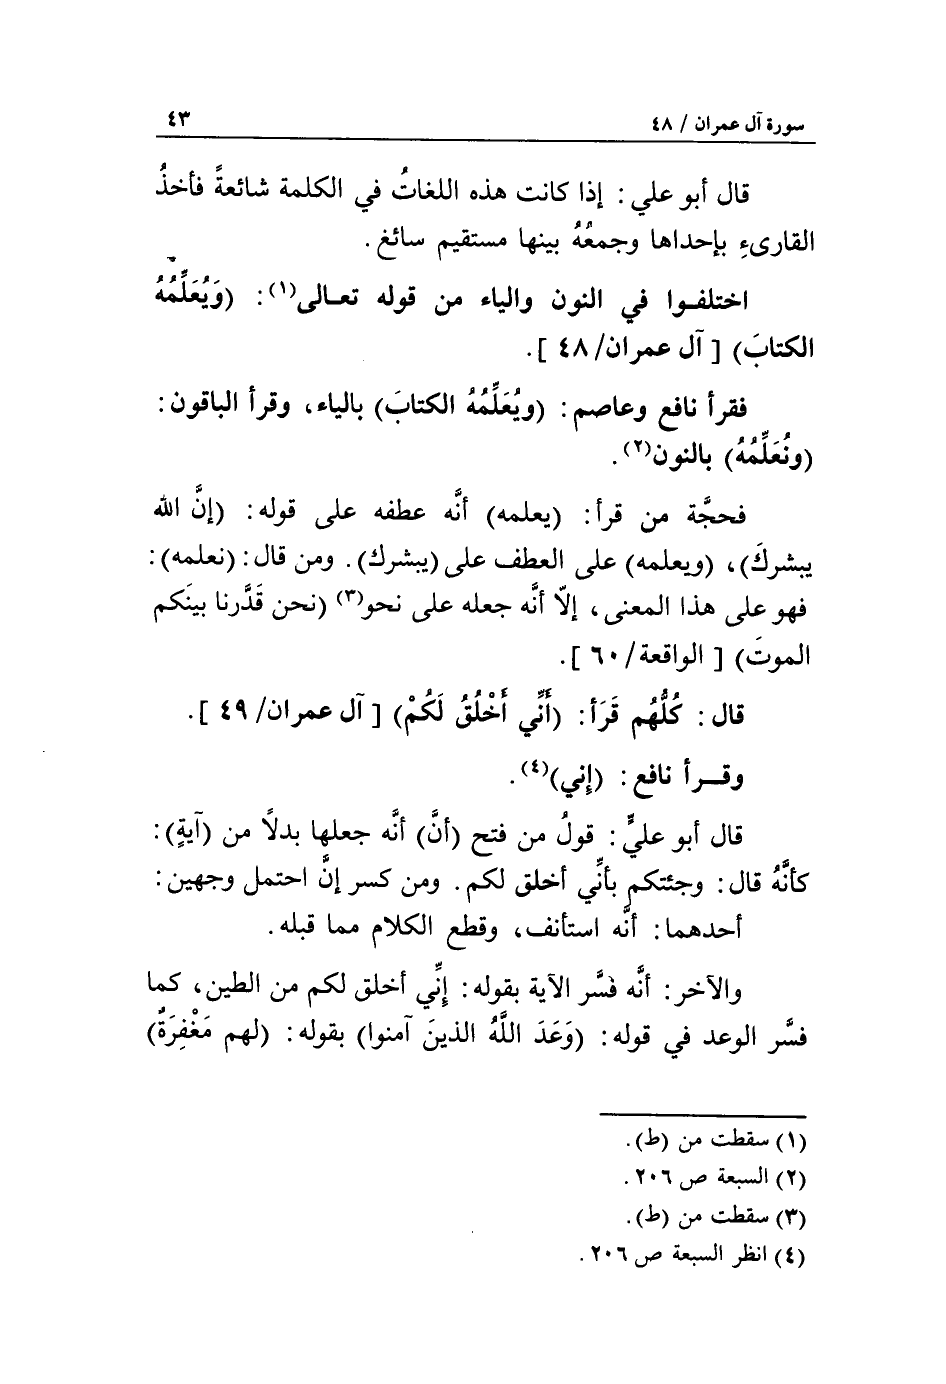 سورة آل عمران / ٤٨ ٤٣
قال أبو علي : إذا كانت هذه اللغاتُ في الكلمة شائعةً فأخذُ
القارىءِ بإحداها وجمعُهُ بينها مستقيم سائغ .
اختلفوا في النون والياء من قوله تعالى(١): (وَيُعَلِّمُهُ
الكتابَ) [ آل عمران/ ٤٨ ].
فقرأ نافع وعاصم : (ويُعَلِّمُهُ الكتابَ) بالياء، وقرأ الباقون :
(ونُعَلِّمُهُ) بالنون(٢).
فحجَّة من قرأ : (يعلمه) أنَّه عطفه على قوله : (إنَّ الله
يبشركَ)، (ويعلمه) على العطف على (يبشرك). ومن قال : (نعلمه) :
فهو على هذا المعنى، إلاّ أنَّه جعله على نحو(٣) (نحن قَدَّرنا بينَكم
الموتَ) [ الواقعة/ ٦٠ ].
قال : كُلُّهُم قَرَأ : (أَنِّي أَخْلُقُ لَكُمْ) [ آل عمران/ ٤٩ ].
وقرأ نافع : (إني)(٤).
قال أبو عليٍّ : قولُ من فتح (أنَّ) أنَّه جعلها بدلًا من (آيةٍ) :
كأنَّهُ قال : وجئتكم بأنِّي أخلق لكم . ومن كسر إنَّ احتمل وجهين :
أحدهما : أنَّه استأنف، وقطع الكلام مما قبله .
والآخر : أنَّه فسَّر الآية بقوله : إنِّي أخلق لكم من الطين، كما
فسَّر الوعد في قوله : (وَعَدَ اللَّهُ الذينَ آمنوا) بقوله : (لهم مَغْفِرَةٌ)
(١) سقطت من (ط).
(٢) السبعة ص ٢٠٦ .
(٣) سقطت من (ط).
(٤) انظر السبعة ص ٢٠٦ .